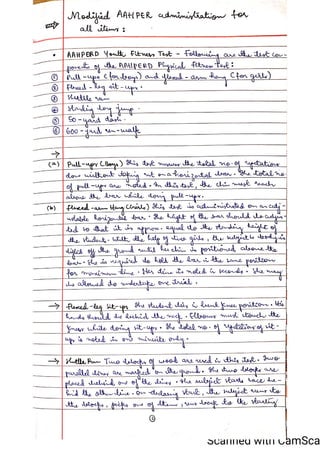 Modified AAHPER administration for
all items:
AAHPERD Youth Fitness Test - Following are the test com-
ponent of the AAHPERD Physical Fitness Test:
① Pull-ups (for boys) and flexed-arm hang (for girls)
② Flexed-leg sit-ups.
③ Shuttle run
④ Standing long jump.
⑤ 50-yard dash.
⑥ 600-yard run-walk
(a) Pull-ups (Boys) This test the total no. of repetitions
done without on a horizontal bar. The total no.
of pull-ups are noted. In this test, the chin must reach
above the bar while doing pull-ups.
(b) Flexed-arm Hang (Girls) This test is administrated on an adj-
ustable horizontal bar. The height of the bar should be adjus-
ted so that it is approx. equal to the standing height of
the student. With the help of two girls, the subject is
lifted off the ground until her chin is positioned above the
bar. She is required to hold the bar in the same position
for maximum time. Her time is noted in seconds. She may
be allowed to undertake one trial.
→ Flexed-leg Sit-ups The student in bent knee position. His
hands should be behind the neck. Elbows must touch the
knees while doing sit-ups. The total no. of repetitions of sit-
up is noted in one minute only.
→ Shuttle Run Two blocks of wood are used in this test. Two
parallel lines are marked on the ground. The two blocks are
placed behind one of the lines. The subject starts be-
hind the other line. On start, the subject runs to
the blocks, picks one of them, runs back to the starting
①
Scanned with CamSca